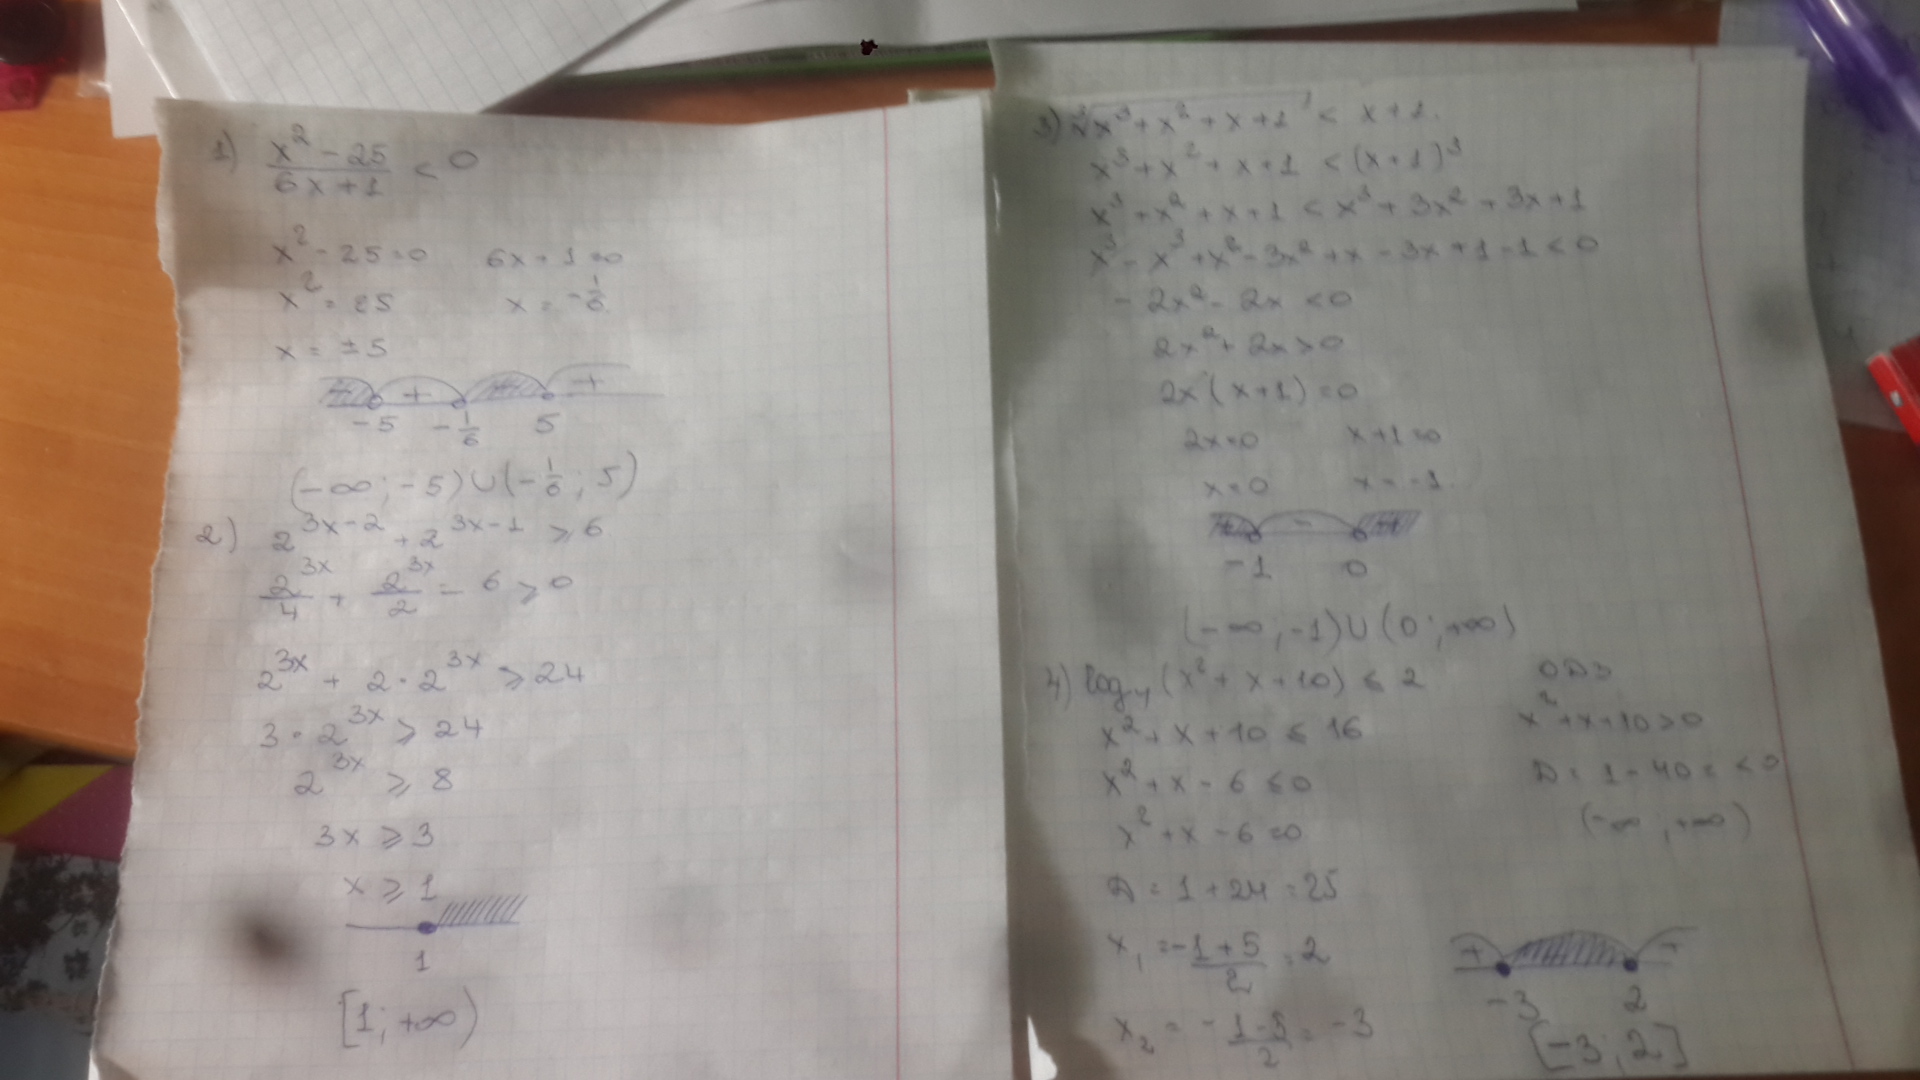 1) (x² - 25)/(6x + 1) < 0
x² - 25 = 0   6x + 1 = 0
x² = 25   x = -1/6
x = ±5
+
+
-5   -1/6   5
(-∞; -5) ∪ (-1/6; 5)
2) 2^(3x-2) + 2^(3x-1) ⩾ 6
2^(3x)/4 + 2^(3x)/2 - 6 ⩾ 0
2^(3x) + 2·2^(3x) ⩾ 24
3·2^(3x) ⩾ 24
2^(3x) ⩾ 8
3x ⩾ 3
x ⩾ 1
1
[1; +∞)
3) ∛(x³ + x² + x + 1) < x + 1.
x³ + x² + x + 1 < (x + 1)³
x³ + x² + x + 1 < x³ + 3x² + 3x + 1
x³ - x³ + x² - 3x² + x - 3x + 1 - 1 < 0
- 2x² - 2x < 0
2x² + 2x > 0
2x (x + 1) = 0
2x = 0   x + 1 = 0
x = 0   x = -1
+   -   +
-1   0
(-∞; -1) ∪ (0; +∞)
4) log₄ (x² + x + 10) ⩽ 2
x² + x + 10 ⩽ 16
x² + x - 6 ⩽ 0
x² + x - 6 = 0
D = 1 + 24 = 25
x₁ = (-1 + 5)/2 = 2
x₂ = (-1 - 5)/2 = -3
ОДЗ
x² + x + 10 > 0
D = 1 - 40 = < 0
(-∞; +∞)
+   +
-3   2
[-3; 2]